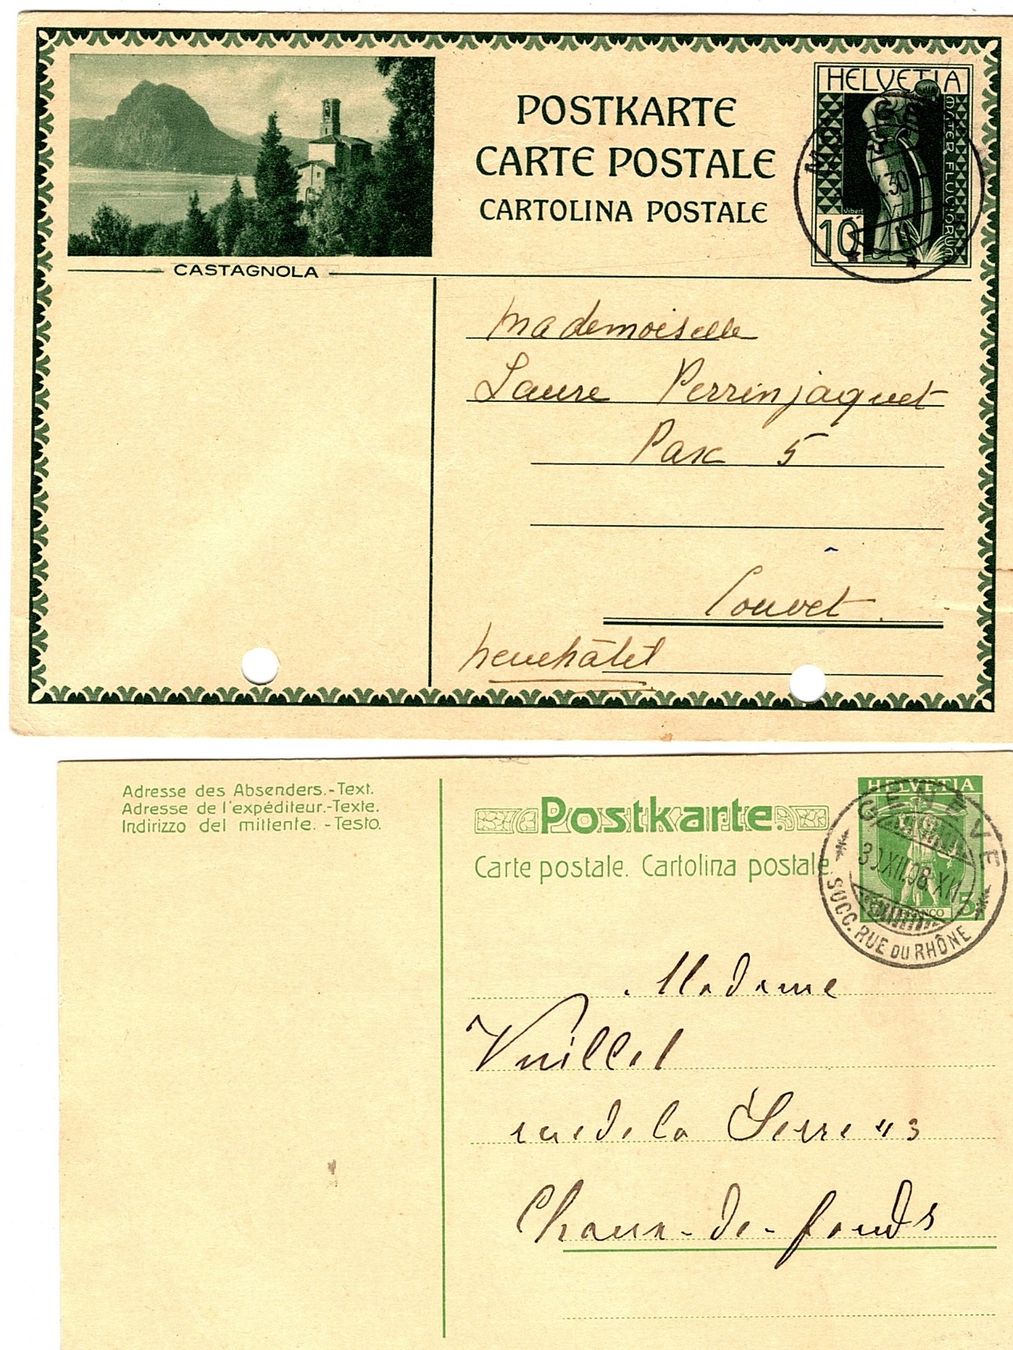 POSTKARTE
CARTE POSTALE
CARTOLINA POSTALE
HELVETIA
MATER FLUVIORUM
10
CASTAGNOLA
Mademoiselle
Laure Perrinjaquet
Parc 5
Couvet.
Neuchâtel
Adresse des Absenders.-Text.
Adresse de l'expéditeur.-Texte.
Indirizzo del mittente.-Testo.
Postkarte.
Carte postale. Cartolina postale.
HELVETIA
FRANCO 5
GENÈVE
XII.08-XI
SUCC. RUE DU RHÔNE
Madame
Vuillet
rue de la Serre
Chaux-de-fonds